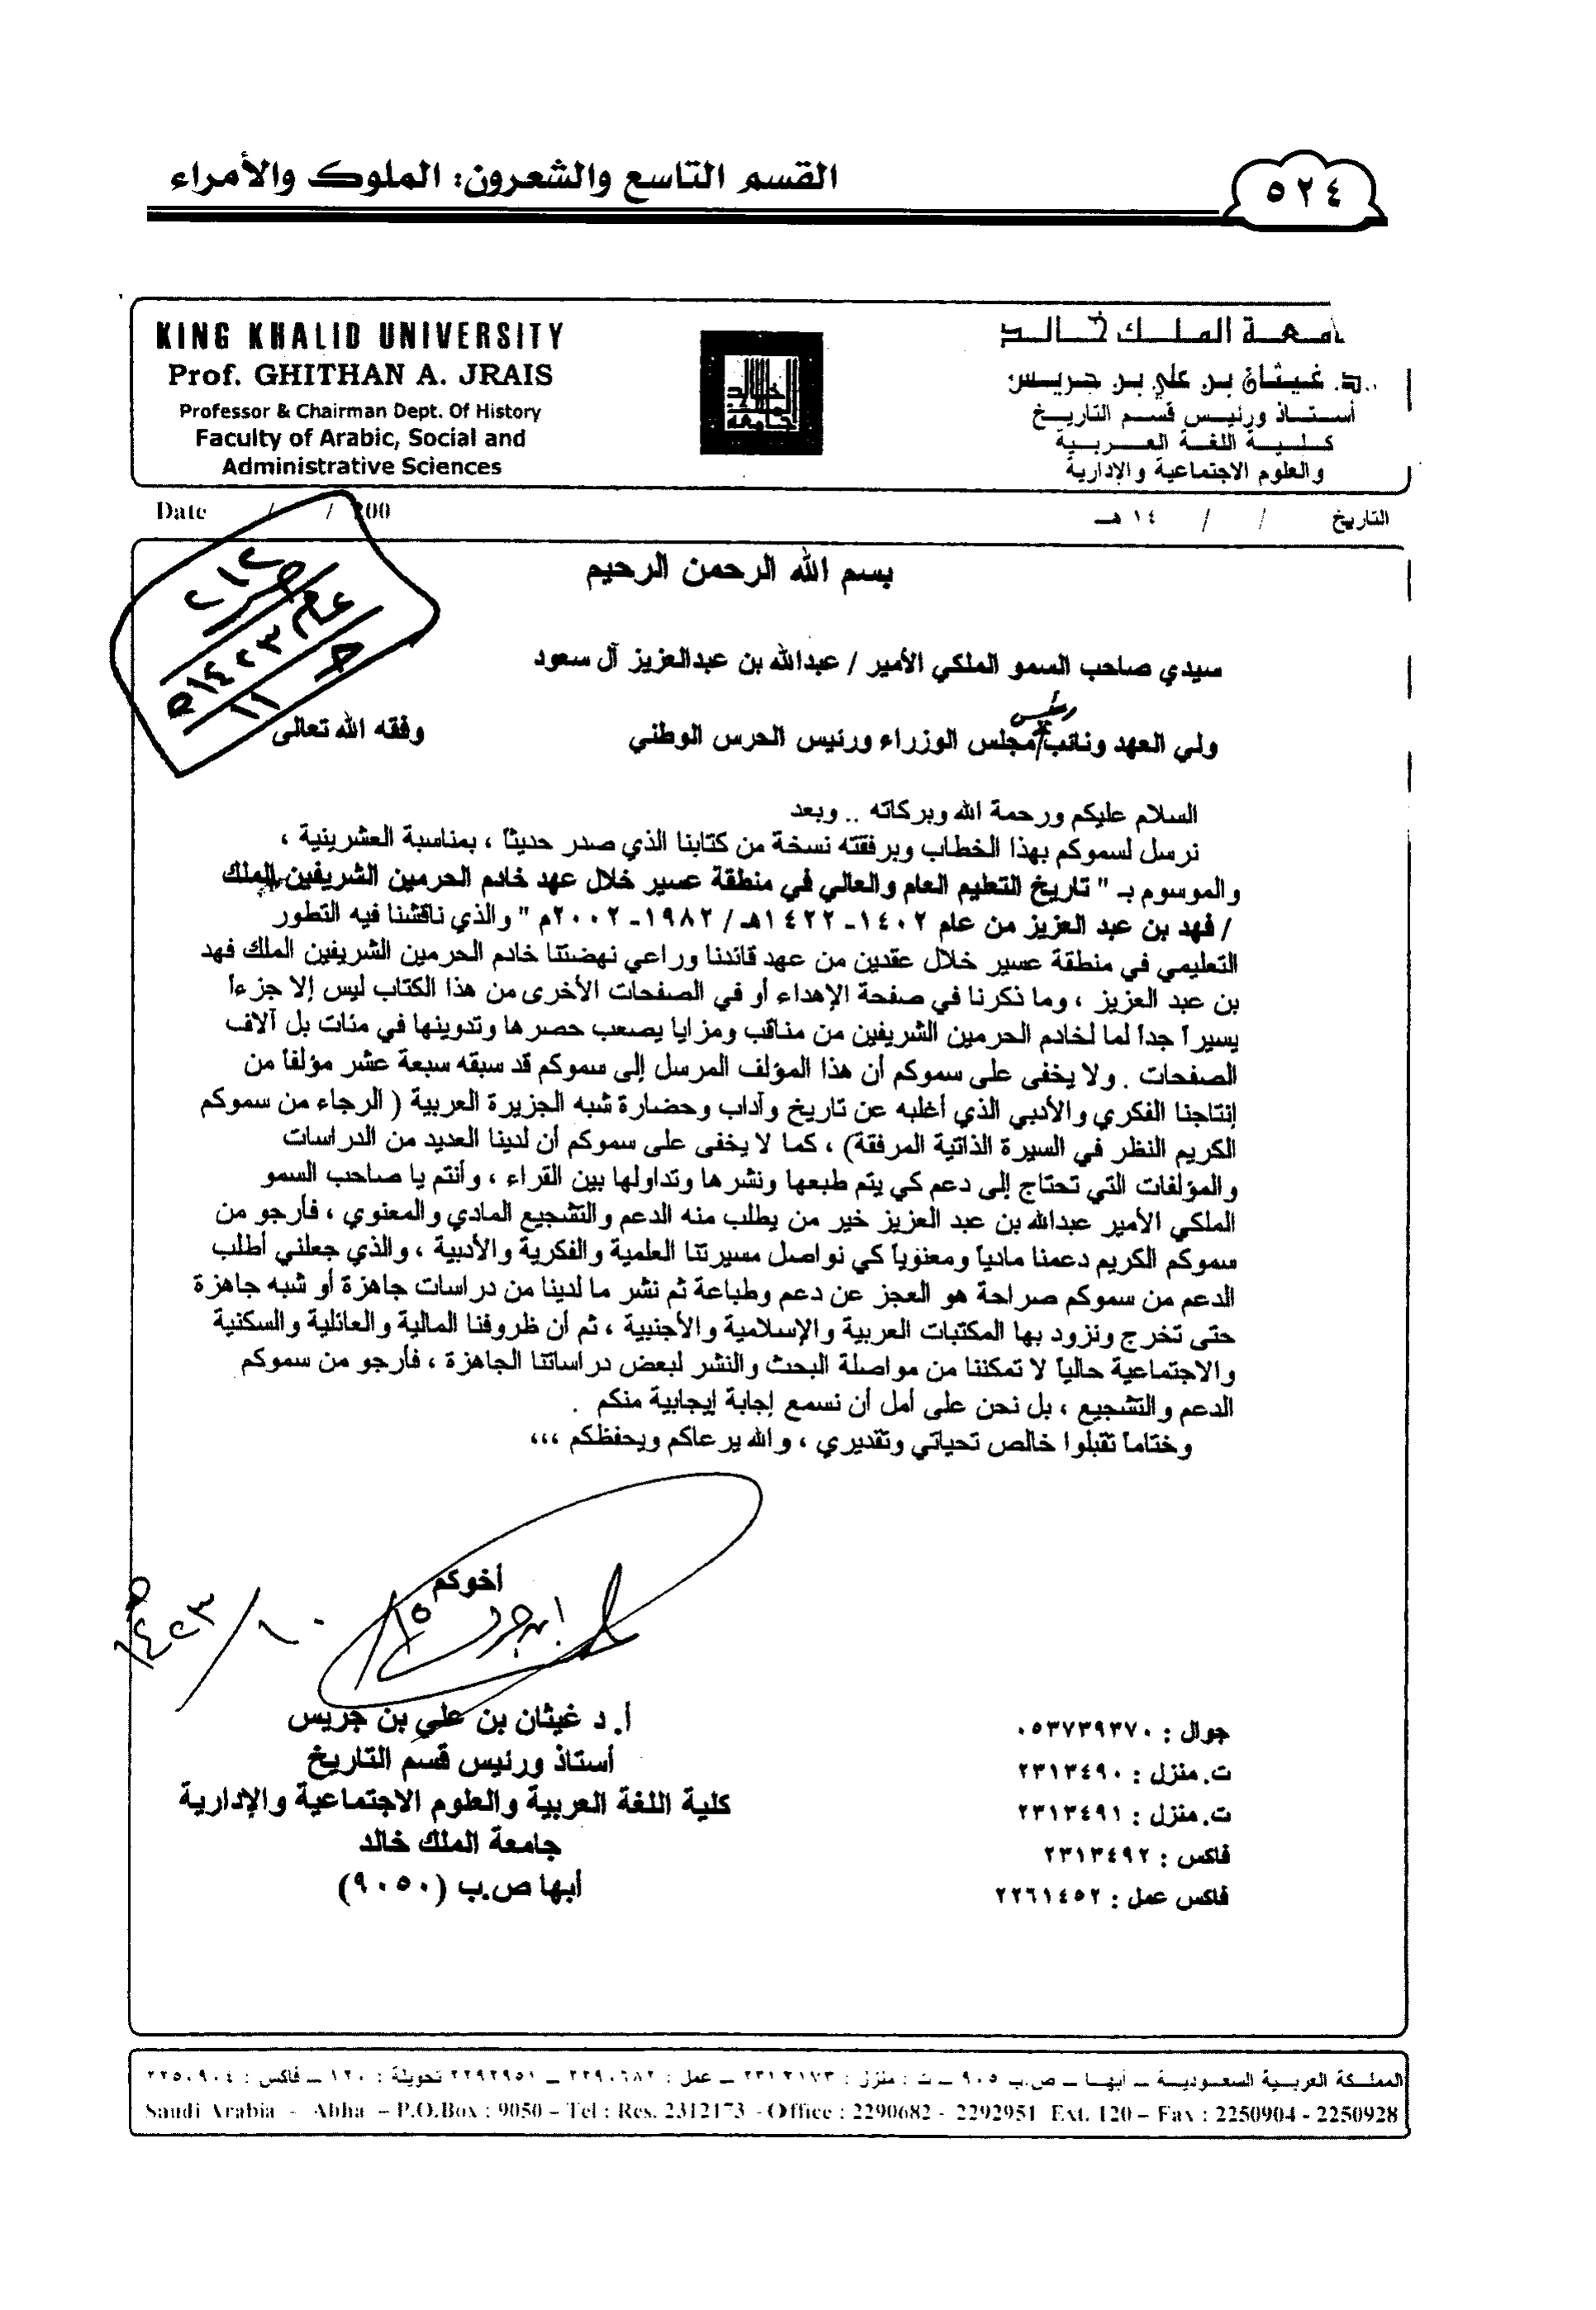 ٥٢٤
القسم التاسع والشعرون: الملوك والأمراء
KING KHALID UNIVERSITY
Prof. GHITHAN A. JRAIS
Professor & Chairman Dept. Of History
Faculty of Arabic, Social and
Administrative Sciences
امعة الملك خالد
.د. غيثان بن علي بن جريس
أستاذ ورئيس قسم التاريخ
كلية اللغة العربية
والعلوم الاجتماعية والإدارية
Date / / 200
التاريخ / / ١٤ هـ
بسم الله الرحمن الرحيم
سيدي صاحب السمو الملكي الأمير / عبدالله بن عبدالعزيز آل سعود
رئيس
ولي العهد ونائب مجلس الوزراء ورئيس الحرس الوطني وفقه الله تعالى
السلام عليكم ورحمة الله وبركاته .. وبعد
نرسل لسموكم بهذا الخطاب وبرفقته نسخة من كتابنا الذي صدر حديثاً ، بمناسبة العشرينية ،
والموسوم بـ " تاريخ التعليم العام والعالي في منطقة عسير خلال عهد خادم الحرمين الشريفين الملك
/ فهد بن عبد العزيز من عام ١٤٠٢- ١٤٢٢هـ/ ١٩٨٢- ٢٠٠٢م " والذي ناقشنا فيه التطور
التعليمي في منطقة عسير خلال عقدين من عهد قائدنا وراعي نهضتنا خادم الحرمين الشريفين الملك فهد
بن عبد العزيز ، وما ذكرنا في صفحة الإهداء أو في الصفحات الأخرى من هذا الكتاب ليس إلا جزءاً
يسيراً جداً لما لخادم الحرمين الشريفين من مناقب ومزايا يصعب حصرها وتدوينها في مئات بل آلاف
الصفحات . ولا يخفى على سموكم أن هذا المؤلف المرسل إلى سموكم قد سبقه سبعة عشر مؤلفاً من
إنتاجنا الفكري والأدبي الذي أغلبه عن تاريخ وآداب وحضارة شبه الجزيرة العربية ( الرجاء من سموكم
الكريم النظر في السيرة الذاتية المرفقة) ، كما لا يخفى على سموكم أن لدينا العديد من الدراسات
والمؤلفات التي تحتاج إلى دعم كي يتم طبعها ونشرها وتداولها بين القراء ، وأنتم يا صاحب السمو
الملكي الأمير عبدالله بن عبد العزيز خير من يطلب منه الدعم والتشجيع المادي والمعنوي ، فأرجو من
سموكم الكريم دعمنا مادياً ومعنوياً كي نواصل مسيرتنا العلمية والفكرية والأدبية ، والذي جعلني أطلب
الدعم من سموكم صراحة هو العجز عن دعم وطباعة ثم نشر ما لدينا من دراسات جاهزة أو شبه جاهزة
حتى تخرج ونزود بها المكتبات العربية والإسلامية والأجنبية ، ثم أن ظروفنا المالية والعائلية والسكنية
والاجتماعية حالياً لا تمكننا من مواصلة البحث والنشر لبعض دراساتنا الجاهزة ، فأرجو من سموكم
الدعم والتشجيع ، بل نحن على أمل أن نسمع إجابة إيجابية منكم .
وختاماً تقبلوا خالص تحياتي وتقديري ، والله يرعاكم ويحفظكم ،،،
أخوكم
أ. د غيثان بن علي بن جريس
أستاذ ورئيس قسم التاريخ
كلية اللغة العربية والعلوم الاجتماعية والإدارية
جامعة الملك خالد
أبها ص.ب (٩٠٥٠)
جوال : ٠٥٣٧٣٩٣٧٠
ت. منزل : ٢٣١٣٤٩٠
ت. منزل : ٢٣١٣٤٩١
فاكس : ٢٣١٣٤٩٢
فاكس عمل : ٢٢٦١٤٥٢
المملكة العربية السعودية – أبها – ص.ب ٩٠٥ – ت : منزل : ٢٣١٢١٧٣ – عمل : ٢٢٩٠٦٨٢ – ٢٢٩٢٩٥١ تحويلة : ١٢٠ – فاكس : ٢٢٥٠٩٠٤
Saudi Arabia - Abha – P.O.Box : 9050 – Tel : Res. 2312173 - Office : 2290682 - 2292951 Ext. 120 – Fax : 2250904 - 2250928